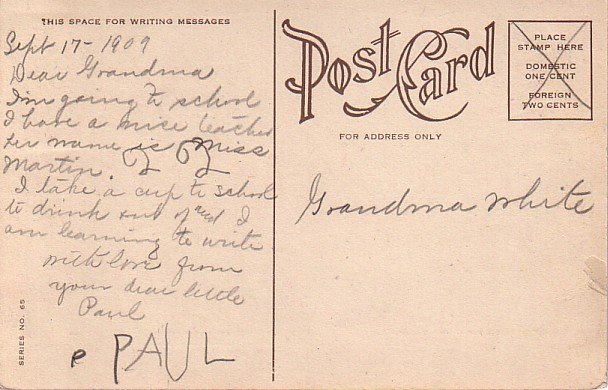 THIS SPACE FOR WRITING MESSAGES
Sept 17-1909
Dear Grandma
I'm going to school
I have a nice teacher
her name is Miss
Martin.
I take a cup to school
to drink out of and I
am learning to write
with love from
your dear little
Paul
P PAUL
SERIES NO. 65
POST CARD
FOR ADDRESS ONLY
PLACE
STAMP HERE
DOMESTIC
ONE CENT
FOREIGN
TWO CENTS
Grandma White